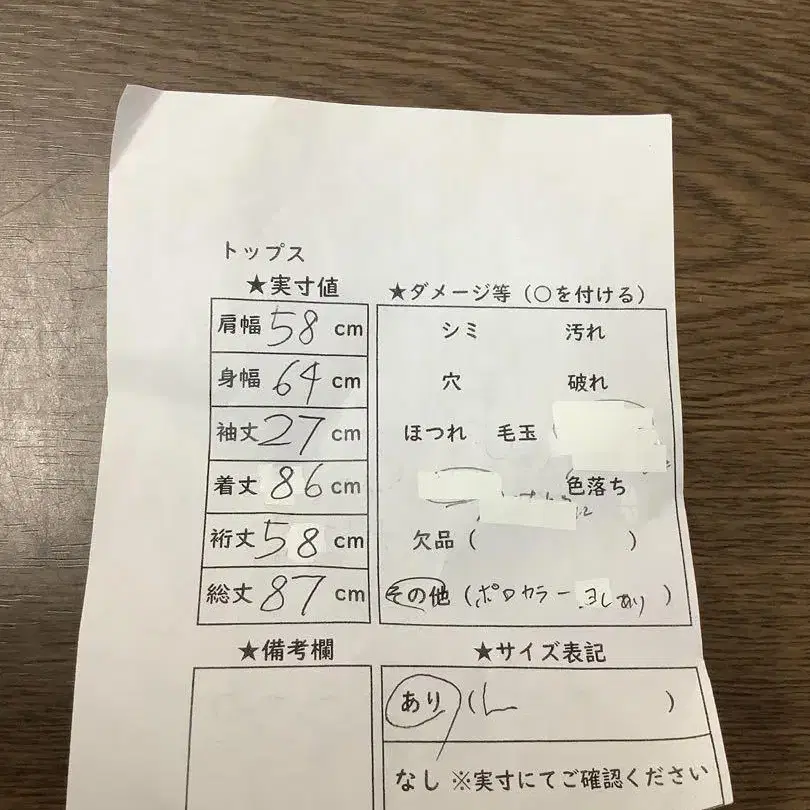 トップス
★実寸値
肩幅 58 cm
身幅 64 cm
袖丈 27 cm
着丈 86 cm
裄丈 58 cm
総丈 87 cm
★ダメージ等（○を付ける）
シミ 汚れ
穴 破れ
ほつれ 毛玉
色落ち
欠品（ ）
その他（ポロカラーヨレあり）
★備考欄
★サイズ表記
あり（L ）
なし ※実寸にてご確認ください